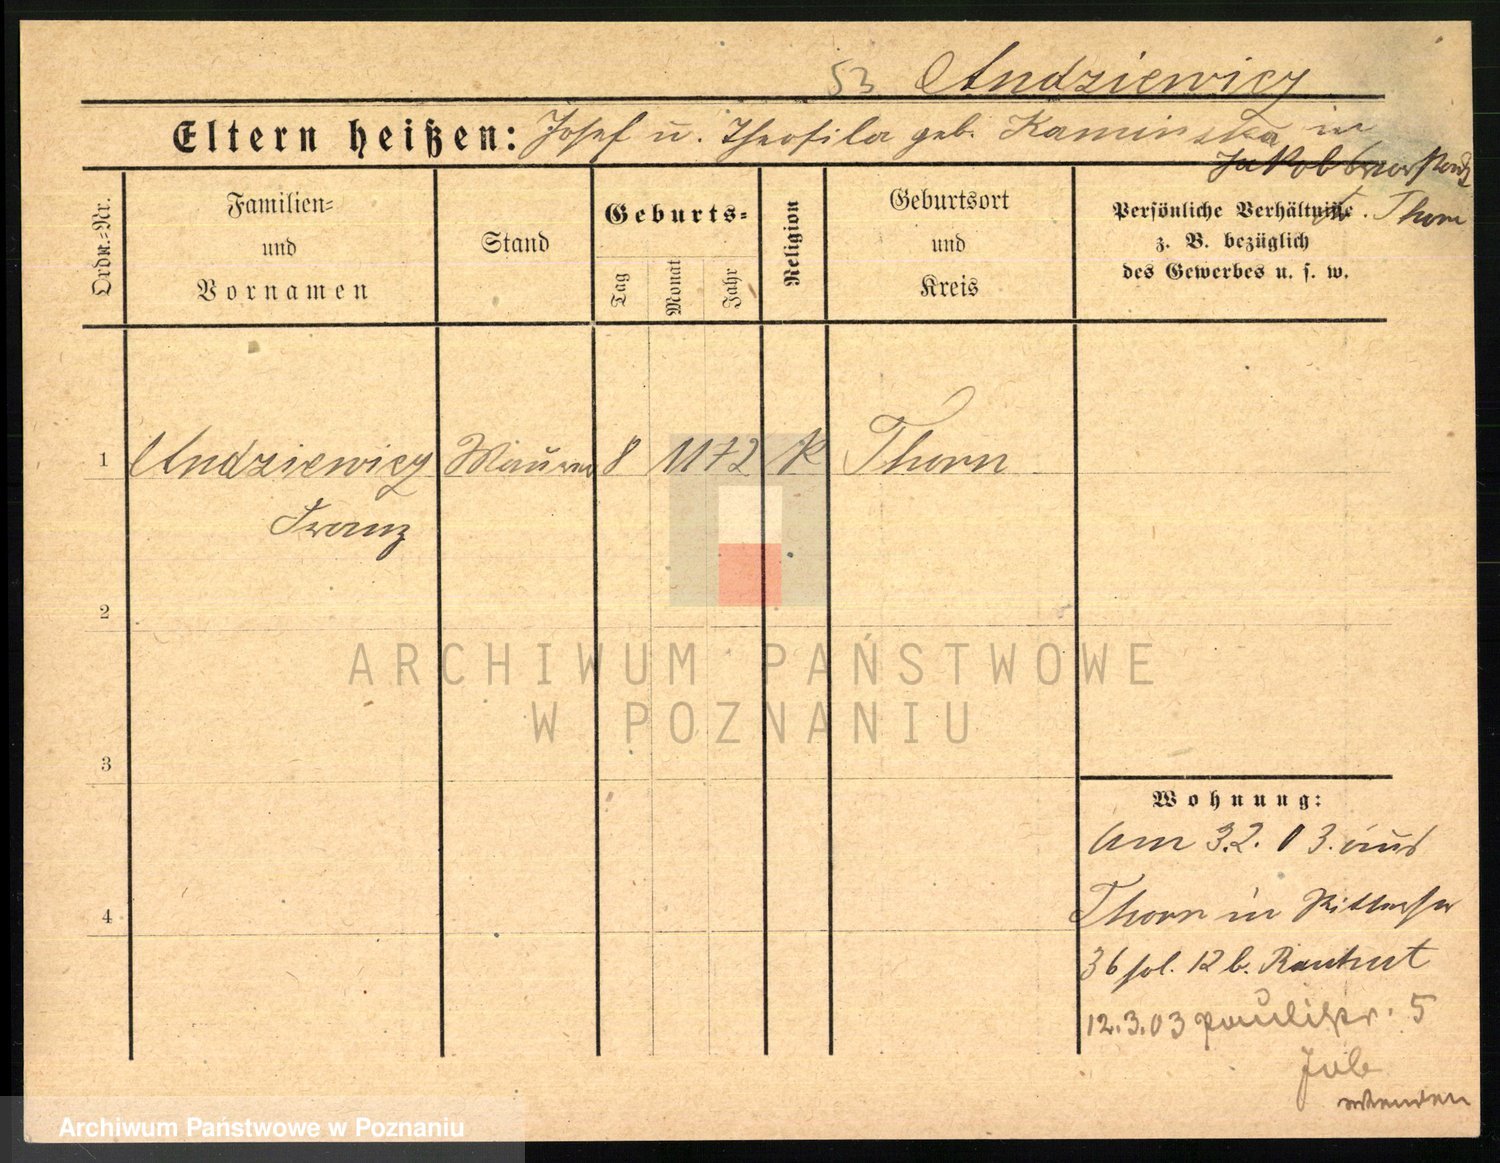 53 Andziewicz
Eltern heißen: Josef u. Theofila geb. Kaminska in
Jakobsvorstadt
b. Thorn
Ordn.-Nr.
Familien-
und
Vornamen
Stand
Geburts-
Tag
Monat
Jahr
Religion
Geburtsort
und
Kreis
Persönliche Verhältnisse
z. B. bezüglich
des Gewerbes u. s. w.
1 Andziewicz Maurer 8 11 72 K Thorn
Franz
2
3
4
Wohnung:
Am 3.2.03. aus
Thorn in
36 12 b.
12.3.03 Paulistr. 5
wenden
ARCHIWUM PAŃSTWOWE
W POZNANIU
Archiwum Państwowe w Poznaniu